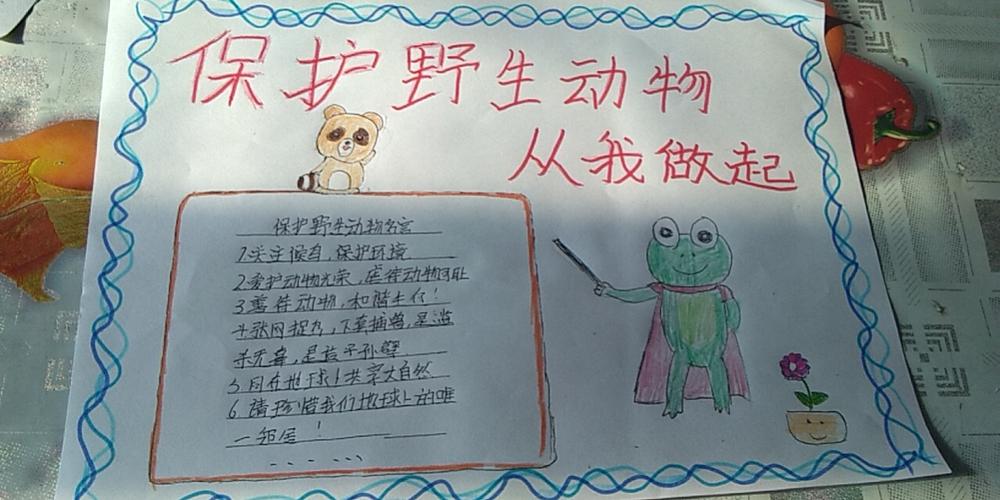 保护野生动物
从我做起
保护野生动物名言
1.关注候鸟,保护环境
2.爱护动物光荣,虐待动物可耻
3.善待动物,和谐生存!
4.张网捉鸟,下套捕兽,是滥
杀无辜,是让子孙孽
5.同在地球!共享大自然
6.请珍惜我们地球上的唯
一邻居!